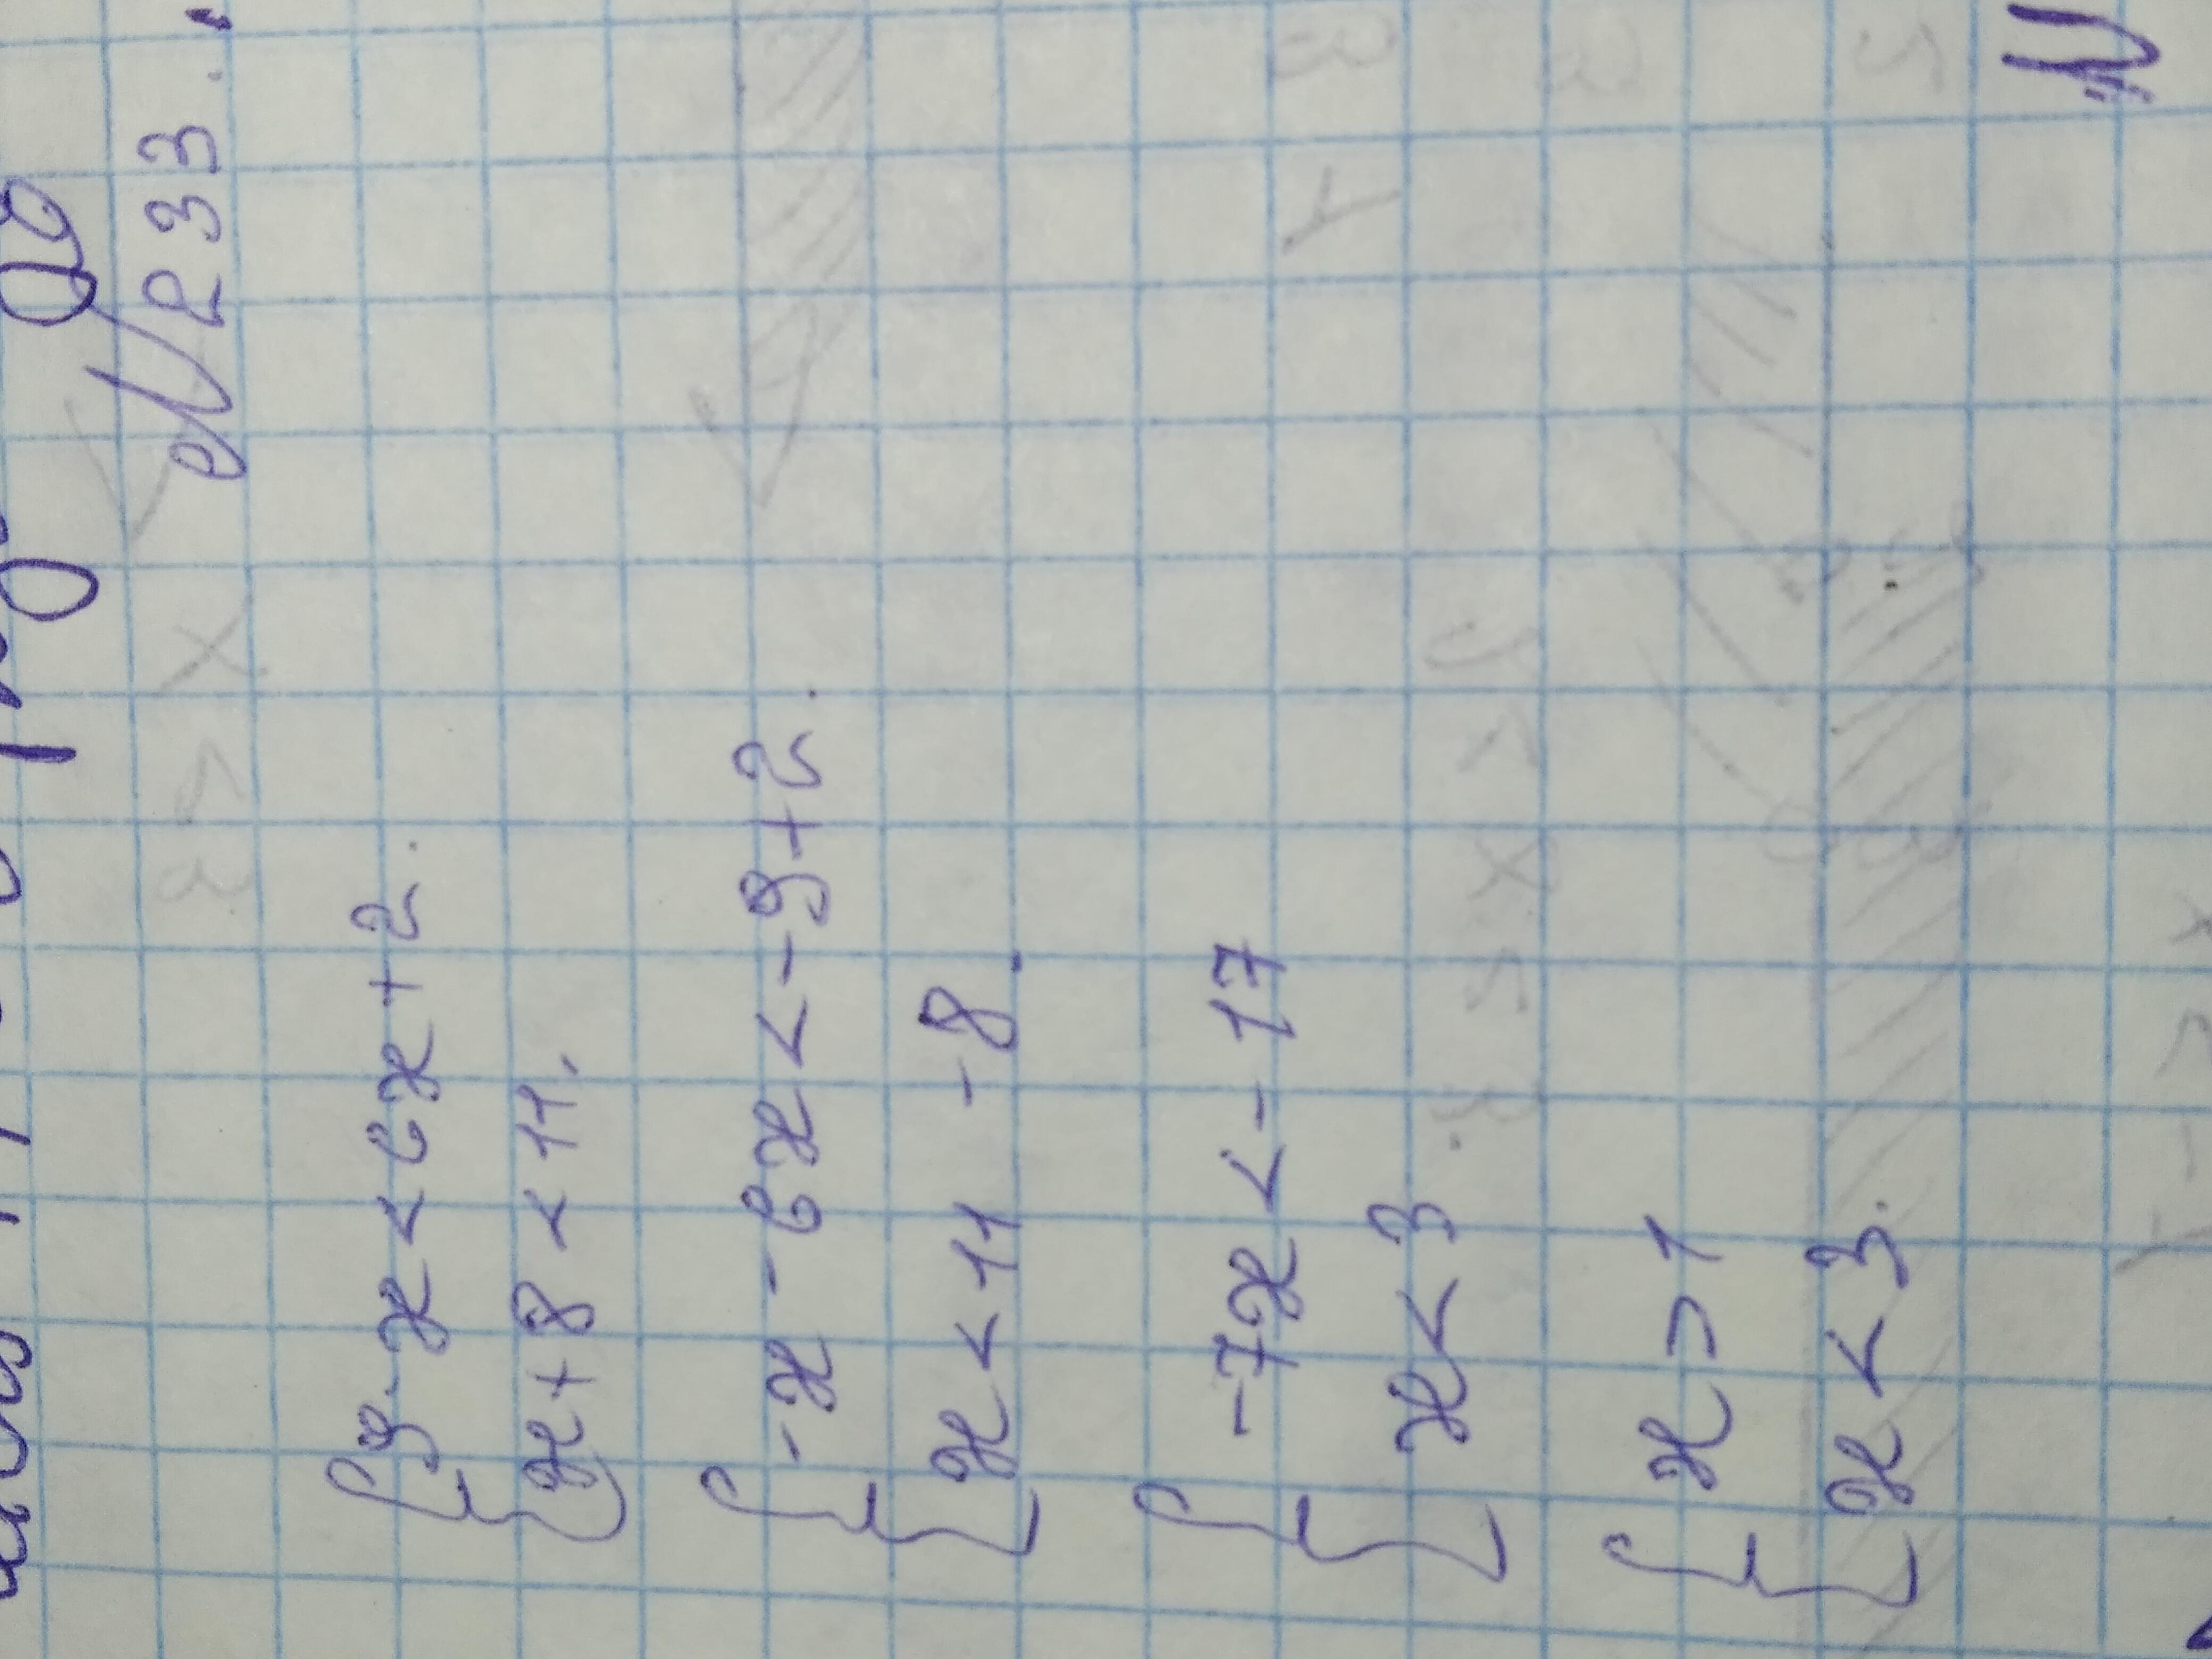 №233.
{ 9-x < 6x+2.
{ x+8 < 11.
{ -x - 6x < -9+2.
{ x < 11 -8.
{ -7x < -17
{ x < 3
{ x > 1
{ x < 3.